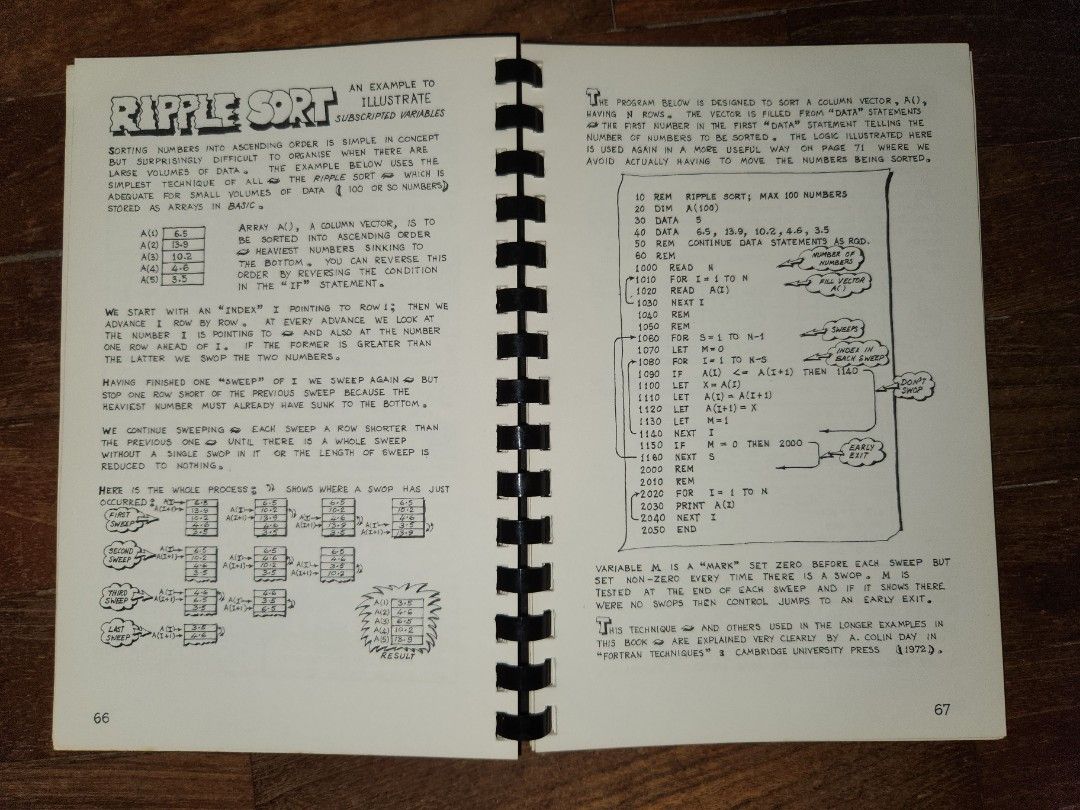 RIPPLE SORT
AN EXAMPLE TO
ILLUSTRATE
SUBSCRIPTED VARIABLES
SORTING NUMBERS INTO ASCENDING ORDER IS SIMPLE IN CONCEPT
BUT SURPRISINGLY DIFFICULT TO ORGANISE WHEN THERE ARE
LARGE VOLUMES OF DATA. THE EXAMPLE BELOW USES THE
SIMPLEST TECHNIQUE OF ALL THE RIPPLE SORT WHICH IS
ADEQUATE FOR SMALL VOLUMES OF DATA (100 OR SO NUMBERS)
STORED AS ARRAYS IN BASIC.
A(1) 6.5
A(2) 13.9
A(3) 10.2
A(4) 4.6
A(5) 3.5
ARRAY A(), A COLUMN VECTOR, IS TO
BE SORTED INTO ASCENDING ORDER
HEAVIEST NUMBERS SINKING TO
THE BOTTOM. YOU CAN REVERSE THIS
ORDER BY REVERSING THE CONDITION
IN THE "IF" STATEMENT.
WE START WITH AN "INDEX" I POINTING TO ROW 1; THEN WE
ADVANCE I ROW BY ROW. AT EVERY ADVANCE WE LOOK AT
THE NUMBER I IS POINTING TO AND ALSO AT THE NUMBER
ONE ROW AHEAD OF I. IF THE FORMER IS GREATER THAN
THE LATTER WE SWOP THE TWO NUMBERS.
HAVING FINISHED ONE "SWEEP" OF I WE SWEEP AGAIN BUT
STOP ONE ROW SHORT OF THE PREVIOUS SWEEP BECAUSE THE
HEAVIEST NUMBER MUST ALREADY HAVE SUNK TO THE BOTTOM.
WE CONTINUE SWEEPING EACH SWEEP A ROW SHORTER THAN
THE PREVIOUS ONE UNTIL THERE IS A WHOLE SWEEP
WITHOUT A SINGLE SWOP IN IT OR THE LENGTH OF SWEEP IS
REDUCED TO NOTHING.
HERE IS THE WHOLE PROCESS: SHOWS WHERE A SWOP HAS JUST
OCCURRED:
FIRST SWEEP
A(I) 6.5 6.5 6.5 6.5
A(I+1) 13.9 A(I) 10.2 10.2 10.2
10.2 A(I+1) 13.9 A(I) 4.6 4.6
4.6 4.6 A(I+1) 13.9 A(I) 3.5
3.5 3.5 3.5 A(I+1) 13.9
SECOND SWEEP
A(I) 6.5 6.5 6.5
A(I+1) 10.2 A(I) 4.6 4.6
4.6 A(I+1) 10.2 A(I) 3.5
3.5 3.5 A(I+1) 10.2
THIRD SWEEP
A(I) 4.6 4.6
A(I+1) 6.5 A(I) 3.5
3.5 A(I+1) 6.5
LAST SWEEP
A(I) 3.5
A(I+1) 4.6
A(1) 3.5
A(2) 4.6
A(3) 6.5
A(4) 10.2
A(5) 13.9
RESULT
66
THE PROGRAM BELOW IS DESIGNED TO SORT A COLUMN VECTOR, A(),
HAVING N ROWS. THE VECTOR IS FILLED FROM "DATA" STATEMENTS
THE FIRST NUMBER IN THE FIRST "DATA" STATEMENT TELLING THE
NUMBER OF NUMBERS TO BE SORTED. THE LOGIC ILLUSTRATED HERE
IS USED AGAIN IN A MORE USEFUL WAY ON PAGE 71 WHERE WE
AVOID ACTUALLY HAVING TO MOVE THE NUMBERS BEING SORTED.
10 REM RIPPLE SORT; MAX 100 NUMBERS
20 DIM A(100)
30 DATA 5
40 DATA 6.5, 13.9, 10.2, 4.6, 3.5
50 REM CONTINUE DATA STATEMENTS AS RQD.
60 REM
1000 READ N
NUMBER OF NUMBERS
1010 FOR I = 1 TO N
1020 READ A(I)
FILL VECTOR A()
1030 NEXT I
1040 REM
1050 REM
1060 FOR S = 1 TO N-1
SWEEPS
1070 LET M = 0
1080 FOR I = 1 TO N-S
INDEX IN EACH SWEEP
1090 IF A(I) <= A(I+1) THEN 1140
1100 LET X = A(I)
DON'T SWOP
1110 LET A(I) = A(I+1)
1120 LET A(I+1) = X
1130 LET M = 1
1140 NEXT I
1150 IF M = 0 THEN 2000
EARLY EXIT
1160 NEXT S
2000 REM
2010 REM
2020 FOR I = 1 TO N
2030 PRINT A(I)
2040 NEXT I
2050 END
VARIABLE M IS A "MARK" SET ZERO BEFORE EACH SWEEP BUT
SET NON-ZERO EVERY TIME THERE IS A SWOP. M IS
TESTED AT THE END OF EACH SWEEP AND IF IT SHOWS THERE
WERE NO SWOPS THEN CONTROL JUMPS TO AN EARLY EXIT.
THIS TECHNIQUE AND OTHERS USED IN THE LONGER EXAMPLES IN
THIS BOOK ARE EXPLAINED VERY CLEARLY BY A. COLIN DAY IN
"FORTRAN TECHNIQUES" ; CAMBRIDGE UNIVERSITY PRESS (1972).
67